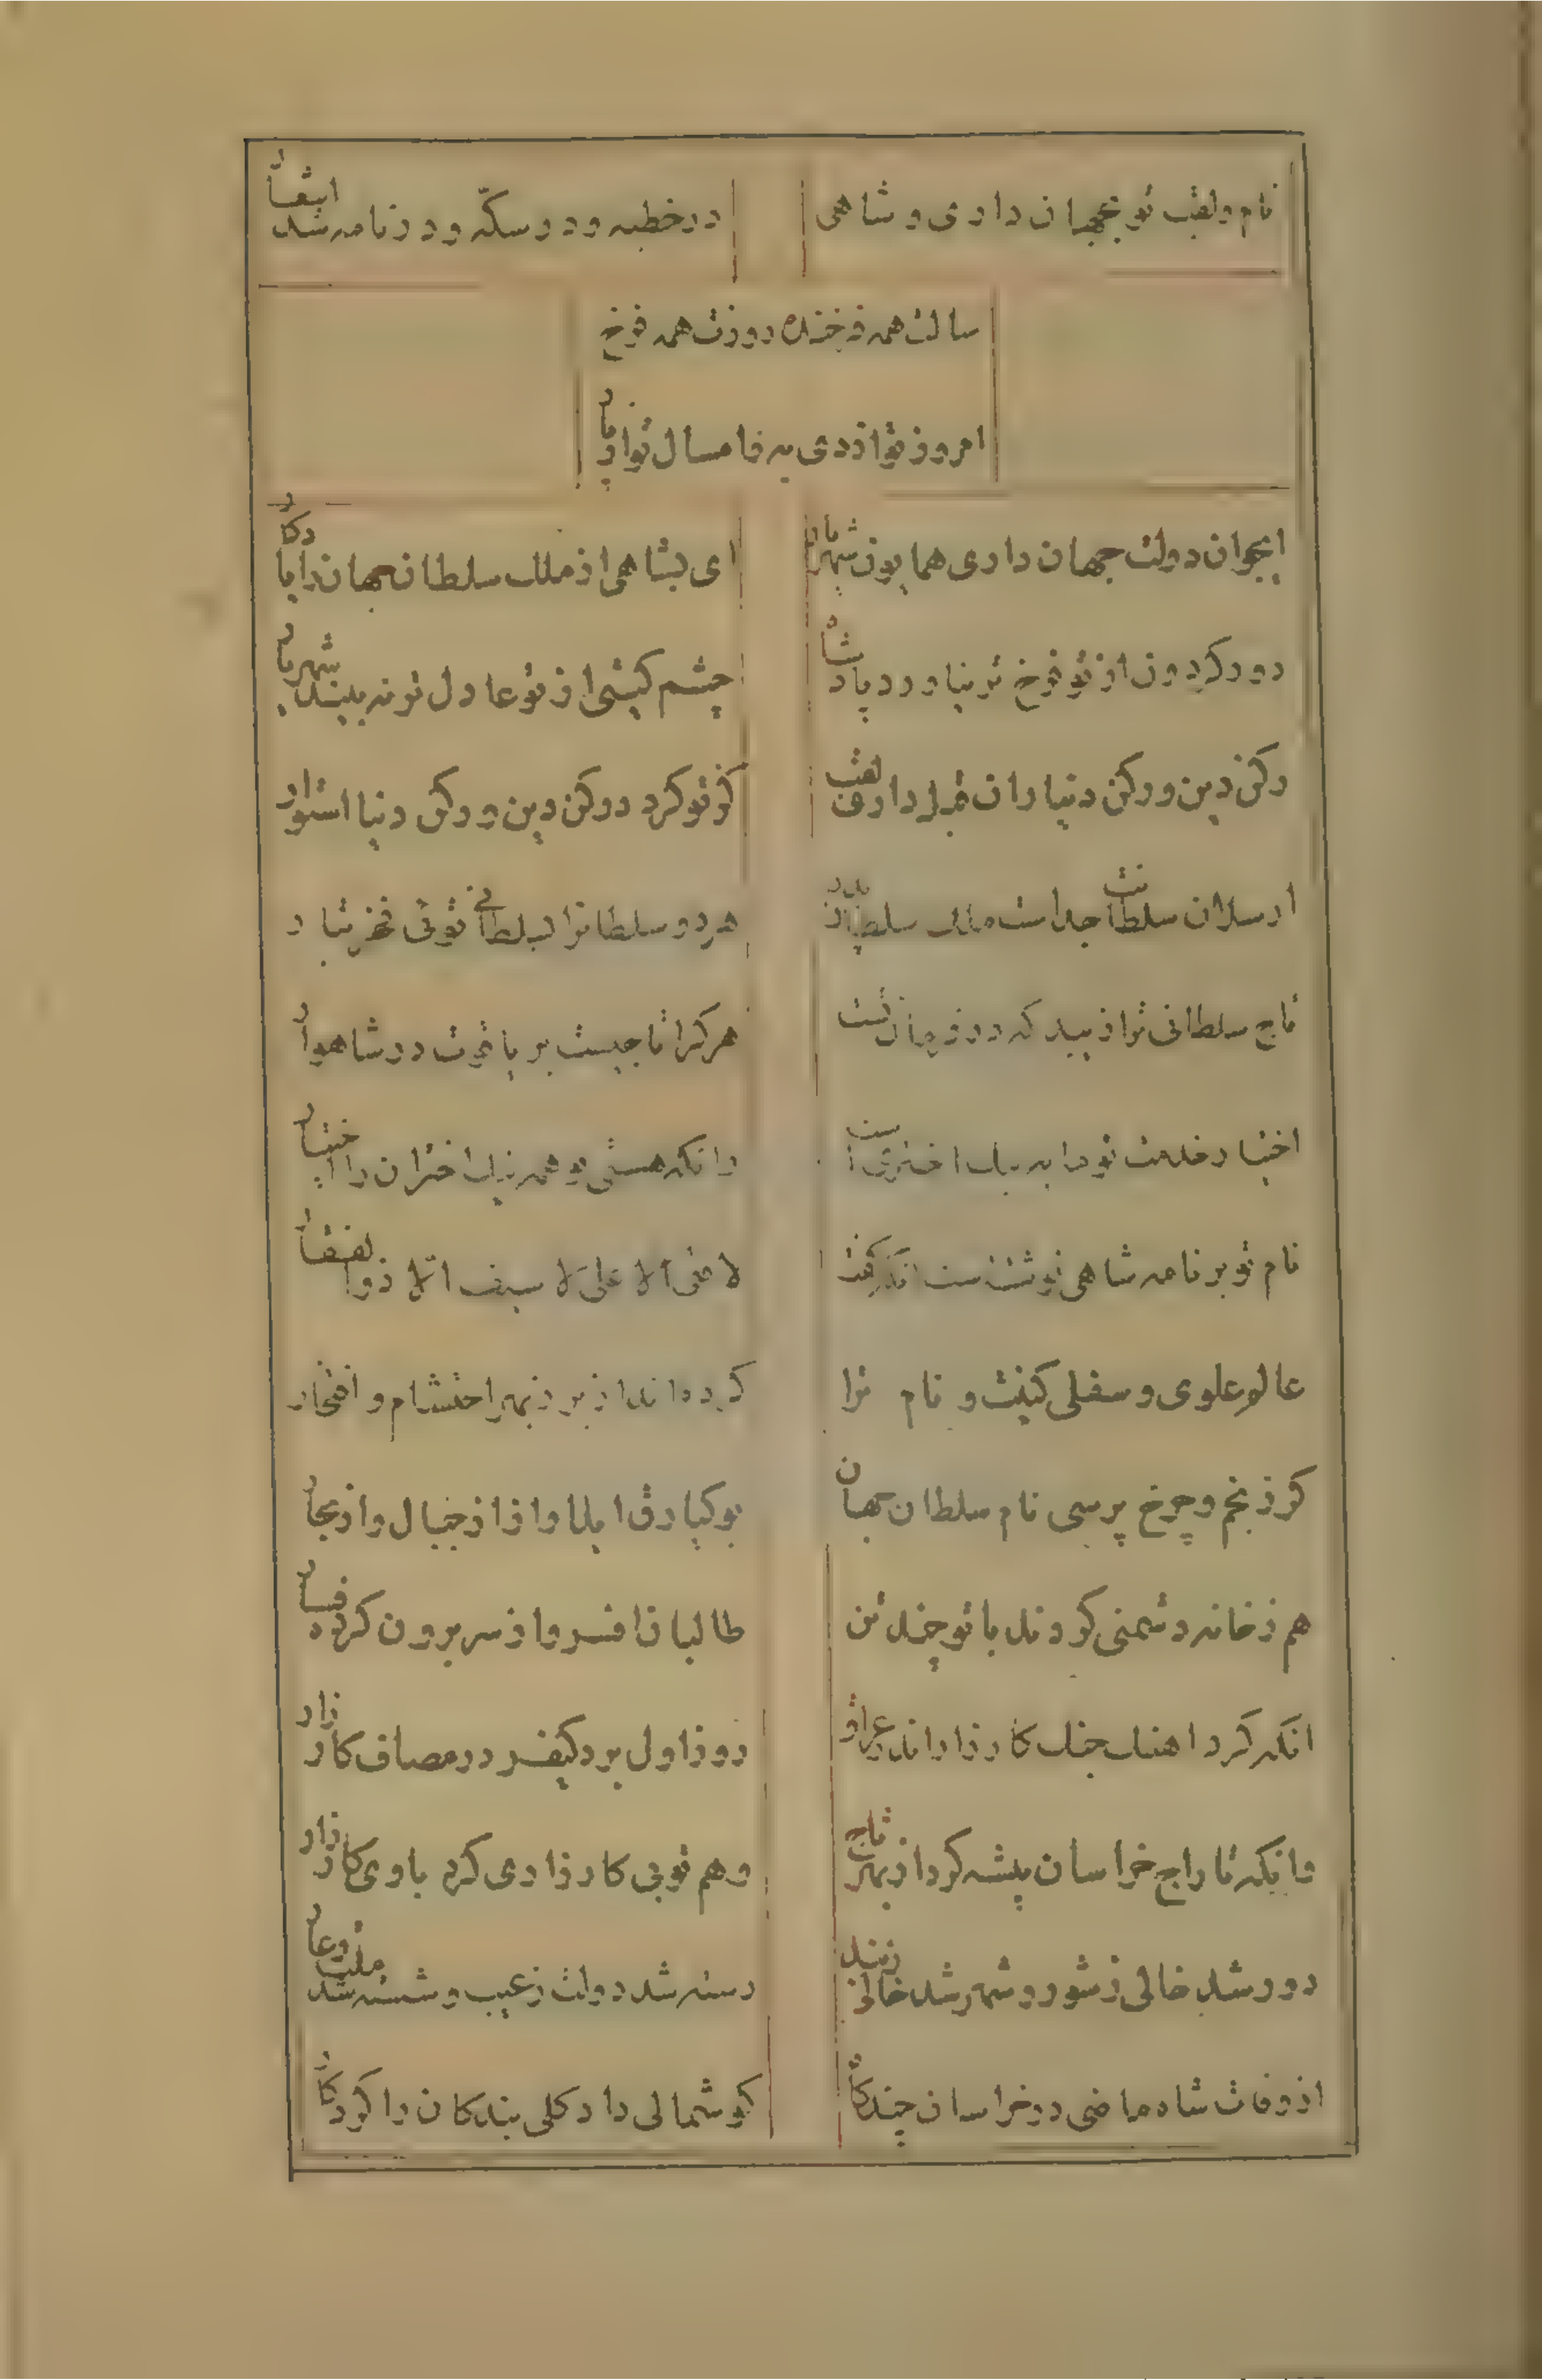 نام و لقب تو بجهان داری و شاهی
در خطبه و در سکّه و در نامه شد
سالت همه فرخنده روزت همه فرخ
امروز تو از دی به و امسال تو از پار
ای جوان دولت جهان داری همایون شهریار
ای بشاهی از ملک سلطان جهان را یادکار
دور کردون از تو فرخ تر نیاورد پادشا
چشم کیتی از تو عادل تر نه بیند شهریار
رکن دین و رکن دنیا زان داری لقب
کز تو کرد رکن دین و رکن دنیا استوار
ارسلان سلطانت جد است ملک سلطان پدر
هر دو سلطانرا بسلطانی توئی فخر تبار
تاج سلطانی ترا زیبد که در فرمان تست
هر کرا تاجیست بر یاقوت در شاهوار
اختیار خدمت تو مرا به نیک اختریست
وانکه هستی تو همه نیک اختران را اختیار
نام تو بر نامه شاهی نوشتست انکه کفت
لا فتی الا علی لا سیف الّا ذوالفقار
عالم علوی و سفلی کنیت و نام ترا
کرده‌اند از بر ز بهر احتشام و افتخار
کر ز نجم و چرخ پرسی نام سلطان جهان
بوکیارق اواز از جبال و از بحار
هم ز خانه دشمنی کردند با تو چند تن
طالبان افسر و از سر برون کرده فسار
انکه کرد اهنک جنک کارزار اندر عراق
روز اول برد کیفر در مصاف کارزار
وانکه تاراج خراسان پیشه کرد از بهر تاج
و هم تو بی کارزاری کرد با وی کارزار
دور شد خالی ز شور و شهر شد خالی
رسته شد دولت ز عیب و شسته شد ملت ز عار
از وفات شاه ماضی در خراسان چندکاه
کوشمالی داد کلی بندکان را